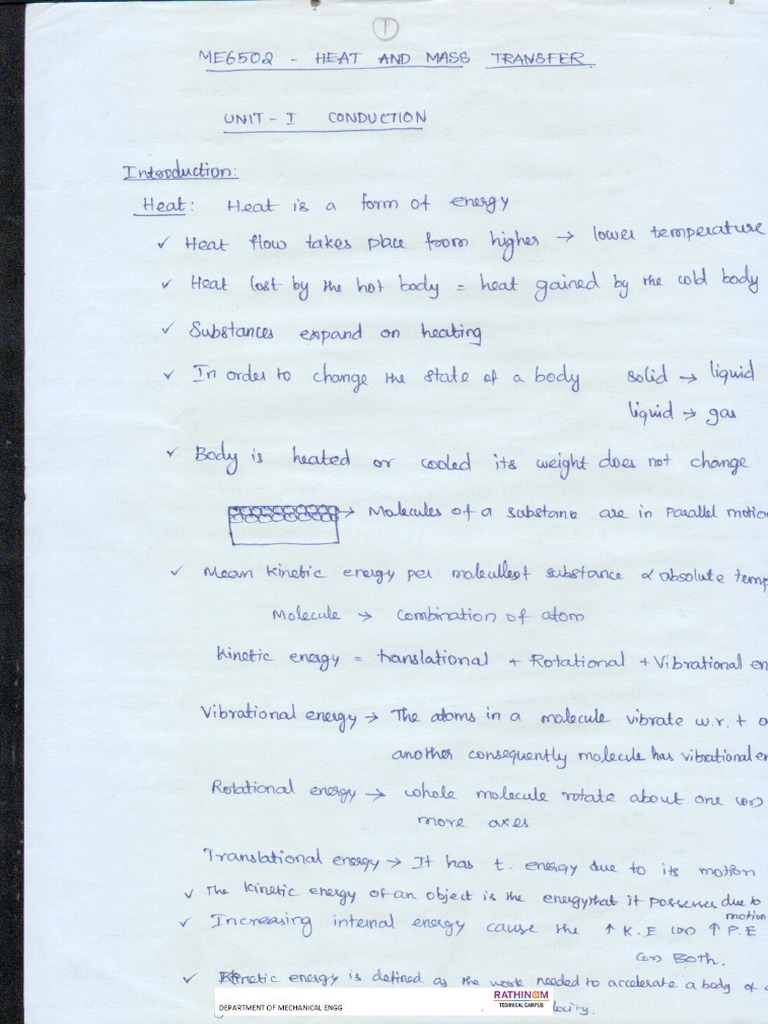 1
ME6502 - HEAT AND MASS TRANSFER
UNIT - I CONDUCTION
Introduction:
Heat: Heat is a form of energy
✓ Heat flow takes place from higher → lower temperature
✓ Heat lost by the hot body = heat gained by the cold body
✓ Substances expand on heating
✓ In order to change the state of a body solid → liquid
liquid → gas
✓ Body is heated or cooled its weight does not change
→ Molecules of a substance are in parallel motion
✓ Mean kinetic energy per molecule of substance ∝ absolute temp
Molecule → combination of atom
Kinetic energy = translational + Rotational + Vibrational en
Vibrational energy → The atoms in a molecule vibrate w.r.t o
another consequently molecule has vibrational en
Rotational energy → whole molecule rotate about one (or)
more axes
Translational energy → It has t. energy due to its motion
✓ The kinetic energy of an object is the energy that it possesses due to
motion
✓ Increasing internal energy cause the ↑ K.E (or) ↑ P.E
(or) Both.
✓ Kinetic energy is defined as the work needed to accelerate a body of a
DEPARTMENT OF MECHANICAL ENGG
RATHINAM
TECHNICAL CAMPUS
locity.